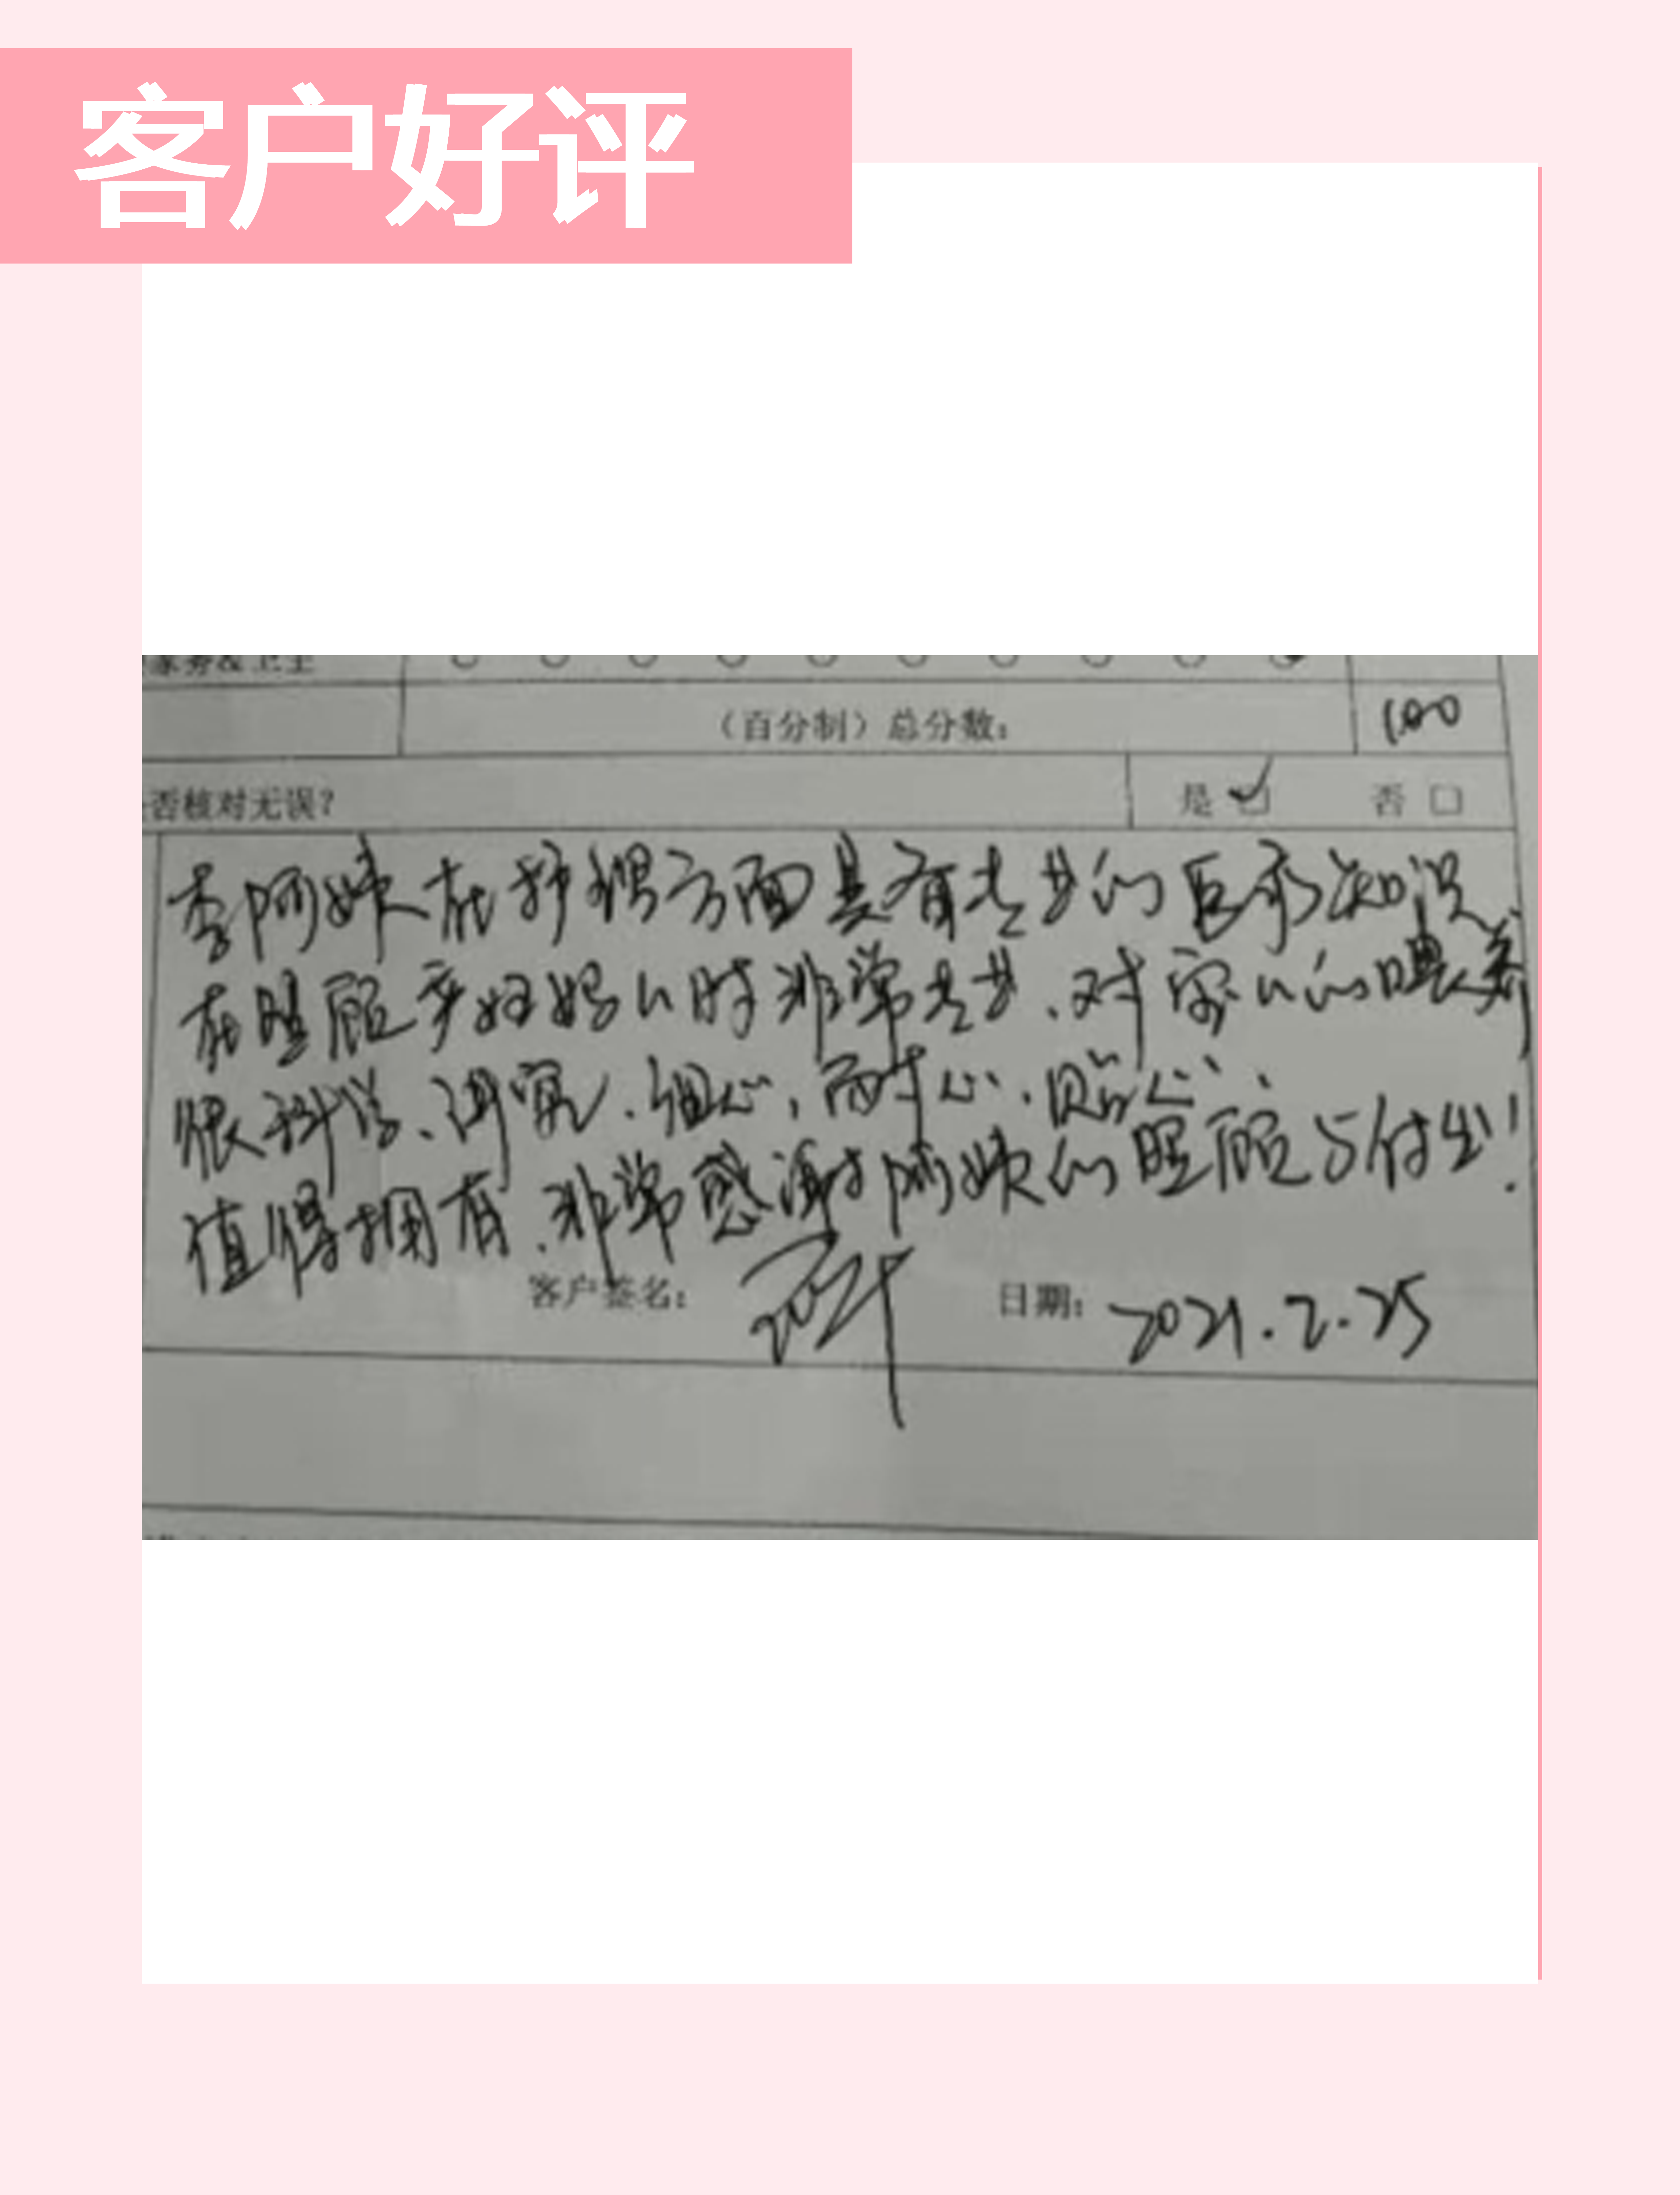 客户好评
家务&卫生
（百分制）总分数： 100
否核对无误？ 是 ☑ 否 □
李阿姨在护理方面具有专业的医疗知识
在照顾产妇妈妈时非常专业、对宝宝的喂养
很科学、讲究、细心，耐心、贴心、
值得拥有、非常感谢阿姨的照顾与付出！
客户签名： 日期： 2021.2.25